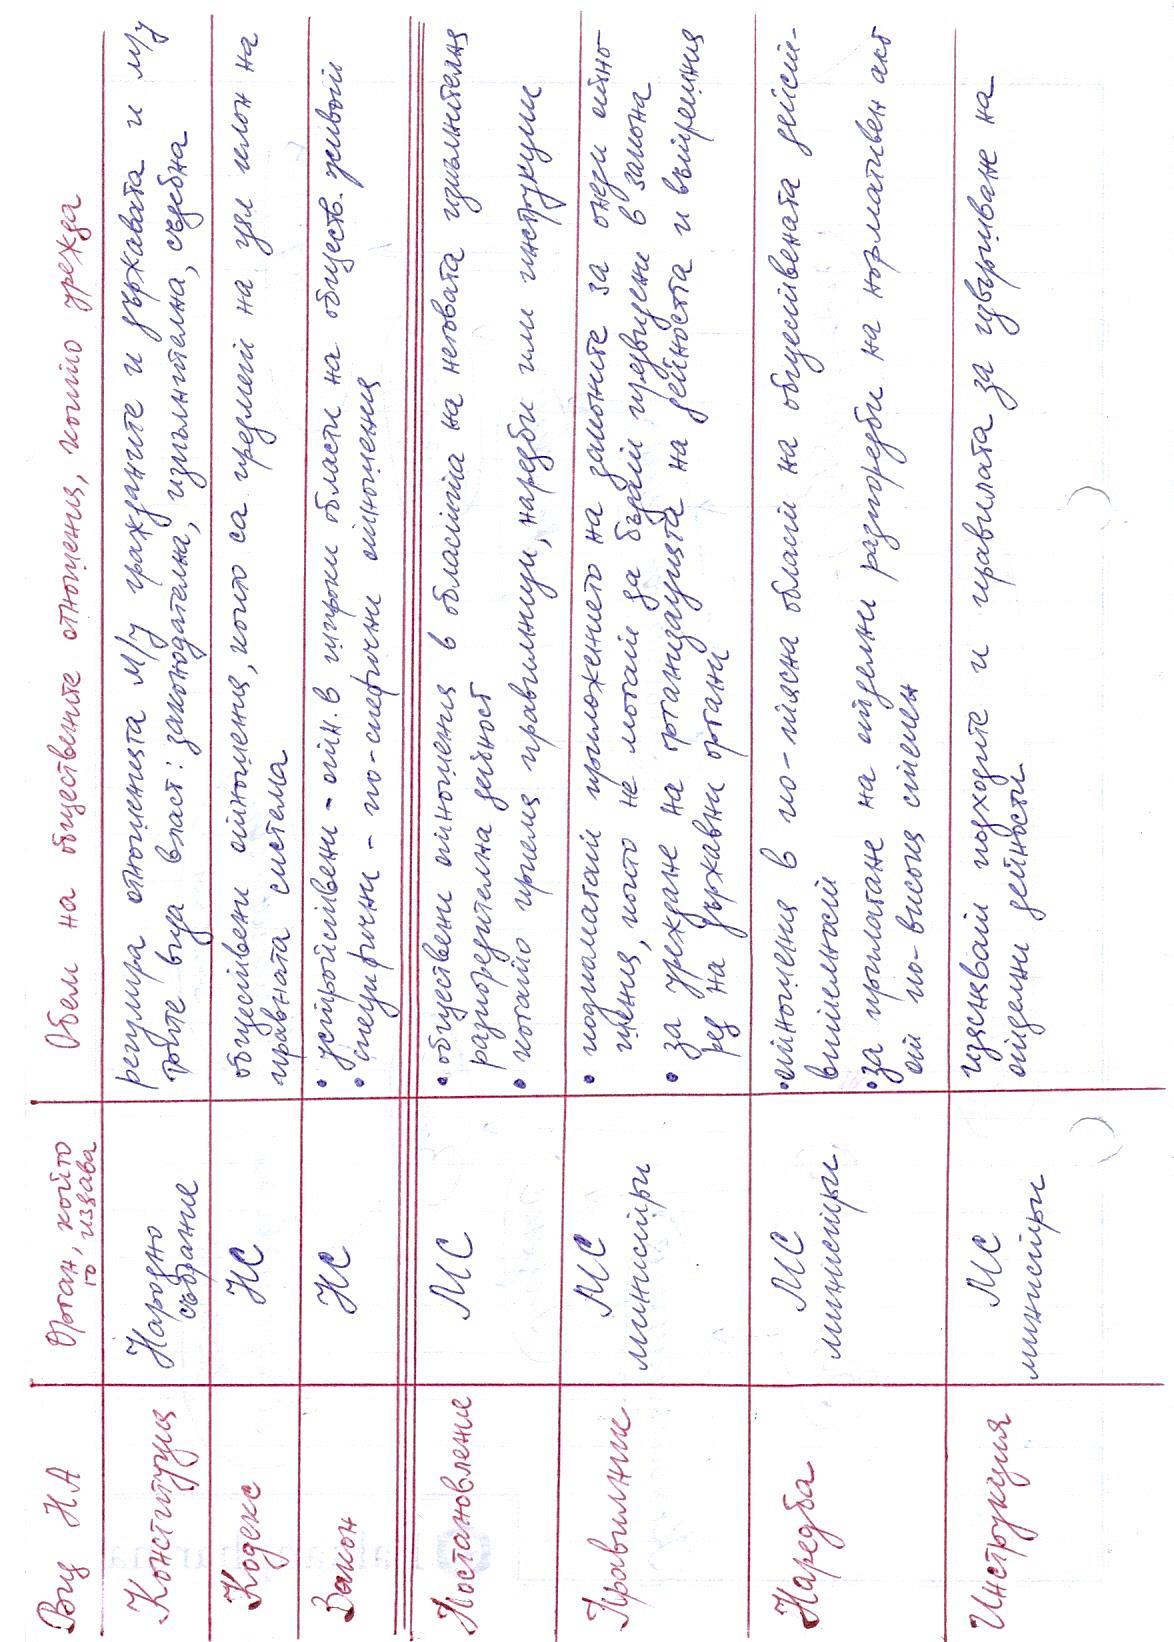 Вид НА
Орган, който
го издава
Обем на обществените отношения, които урежда
Конституция
Народно
събрание
регулира отношенията м/у гражданите и държавата и м/у
трите вида власт: законодателна, изпълнителна, съдебна
Кодекс
НС
обществени отношения, които са предмет на цял клон на
правната система
Закон
НС
• устройствени - отн. в широки области на обществ. живот
• специфични - по-специфични отношения
Постановление
МС
• обществени отношения в областта на неговата изпълнителна
разпоредителна дейност
• когато приема правилници, наредби или инструкции
Правилник
МС
министри
• подпомагат приложението на законите за онези отно-
шения, които не могат да бъдат предвидени в закона
• за уреждане на организацията на дейността и вътрешния
ред на държавни органи
Наредба
МС
министри
• отношения в по-тясна област на обществената дейст-
вителност
• за прилагане на отделни разпоредби на нормативен акт
от по-висока степен
Инструкция
МС
министри
изясняват подходите и правилата за извършване на
отделни дейности